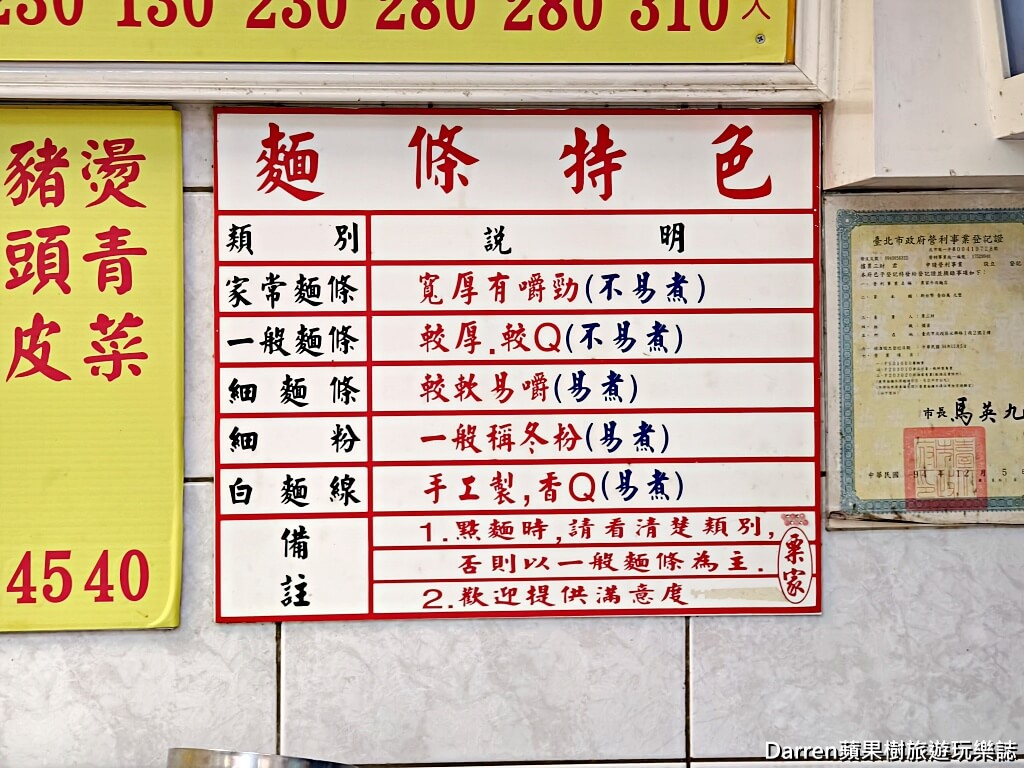 130 230 280 280 310
豬頭皮 45
燙青菜 40
麵條特色
類別 說明
家常麵條 寬厚有嚼勁(不易煮)
一般麵條 較厚.較Q(不易煮)
細麵條 較軟易嚼(易煮)
細粉 一般稱冬粉(易煮)
白麵線 手工製,香Q(易煮)
備註 1.點麵時,請看清楚類別,
否則以一般麵條為主.
2.歡迎提供滿意度
粟家
臺北市政府營利事業登記證
市長 馬英九
中華民國 94 年 12 月 5
Darren蘋果樹旅遊玩樂誌